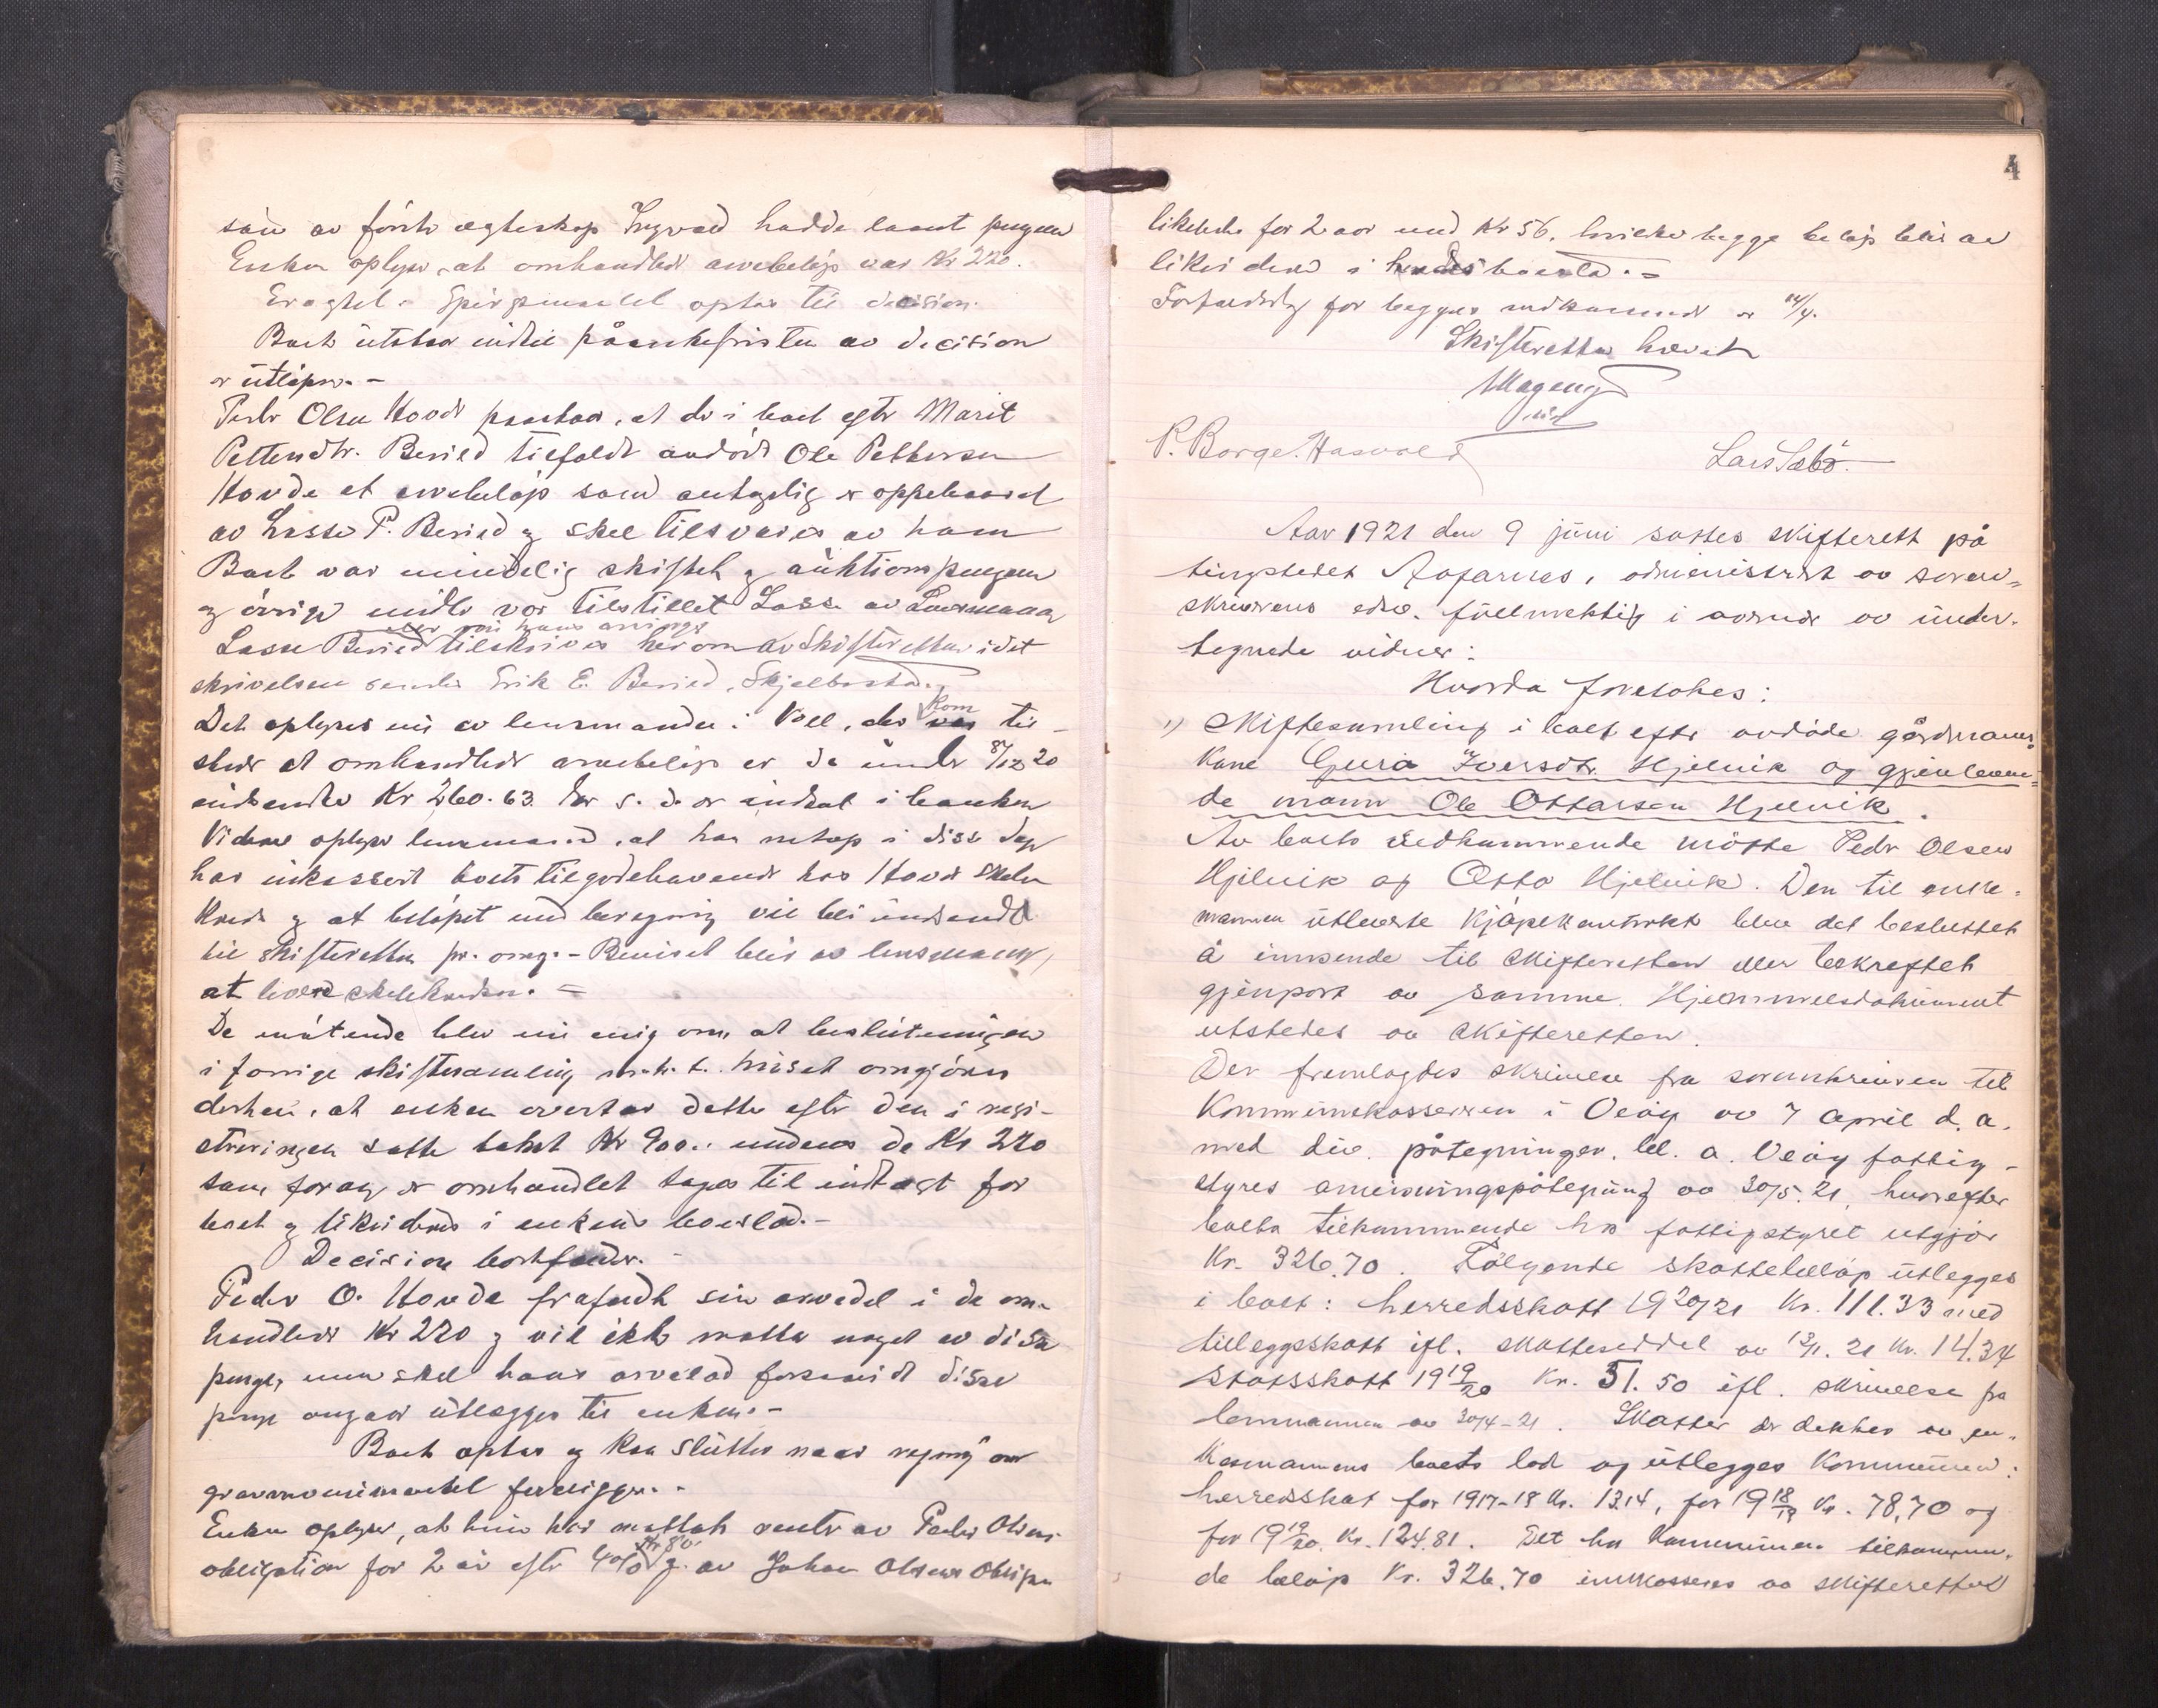 søn av første ægteskap Ingvald hadde laant pengene
Enken oplyser, at omhandlede arvebeløp var Kr 220.
Eragtet. Spørsmaalet optas til decision.
Boet utstaar indtil påankefristen av decision
er utløpen. -
Peder Olsen Hovde paastaar, at der i boet efter Marit
Pettersdtr. Beried tilfaldt avdøde Ole Pettersen
Hovde et arvebeløp som antagelig er oppebaaret
av Lasse P. Beried og skal tilsvares av ham
Boet var mindelig skiftet og auktionspengene
og øvrige midler var tilstillet Lasse av Lensmanden
eller om hans arvinge
Lasse Beried tilskrives herom av Skifteretten idet
skrivelsen sendes Erik E. Beried, Skjelbostad.
Det oplyses nu av lensmanden i Voll, der var kom til-
stede at omhandlede arvebeløp er de under 8/12 20
indsendte Kr 260.63. der s. d. er indsat i banken
Videre oplyser lensmand, at han netop i disse dage
har inkassert boets tilgodehavende hos Hovde Skole
Kreds og at beløpet med beregning vil bli indsendt
til skifteretten pr. omg. - Beviset blir av lensmannen
at levere skolekredsen. =
De møtende blev nu enig om, at beslutningen
i forrige skiftesamling m. h. t. huset omgjøres
derhen, at enken overtar dette efter den i regi-
streringen satte takst Kr 900.. medens de Kr 220
som foran er omhandlet tages til indtægt for
boet og likvideres i enkens boeslod. -
Decision bortfalder. -
Peder O. Hovde frafaldt sin arvedel i de om-
handlede Kr 220 og vil ikke motta noget av disse
penge, men skal hans arvelod forsaavidt disse
penge angaar utlægges til enken. -
Boet optas og kan sluttes naar regning over
gravmonumentet foreligger. -
Enken oplyser, at hun har mottat rente av Peder Olsens
obligation for 2 år efter 4% Kr 80. og av Johan Olsens Obligation
4
likeledes for 2 aar med Kr 56. hvilke begge beløp blir av
likvidere i hendes boeslod. =
Forfaldsdag for begges vedkommende er 14/4.
Skifteretten hævet
Mageng
cst
P. Borge. Hasvold
Lars Sæbø.
Aar 1921 den 9 juni sattes skifterett på
tingstedet Aafarnes, administrert av soren-
skriverens edsv. fullmektig i overvær av under-
tegnede vidner:
Hvorda foretokes:
1) Skiftesamling i boet efter avdøde gårdmanns-
kone Guria Iversdtr. Hjelvik og gjenleven-
de mann Ole Ottarsen Hjelvik.
Av boets vedkommende møtte Peder Olsen
Hjelvik og Otto Hjelvik. Den til enke-
mannen utleverte kjøpekontrakt blev det besluttet
å innsende til skifteretten eller bekreftet
gjenpart av samme. Hjemmelsdokument
utstedes av skifteretten.
Der fremlagdes skrivelse fra sorenskriveren til
Kommunekassereren i Veøy av 7 april d. a.
med div. påtegninger, bl. a. Veøy fattig-
styres anvisningspåtegning av 30/5. 21, hvorefter
boets tilkommende hos fattigstyret utgjør
Kr. 326.70. Følgende skattebeløp utlegges
i boet: herredsskatt 1920/21 Kr. 111.33 med
tilleggsskatt ifl. skatteseddel av 12/1. 21 Kr. 14.34
Statsskatt 1919/20 Kr. 51.50 ifl. skrivelse fra
lensmannen av 30/4-21. Skatter der dekkes av en-
kemannens boets lod og utlegges Kommunen:
herredsskat for 1917-18 Kr. 13.14, for 1918/19 Kr. 78,70 og
for 1919/20. Kr. 124.81. Det hos Kommunen tilkommen-
de beløp Kr. 326,70 innkasseres av skifteretten